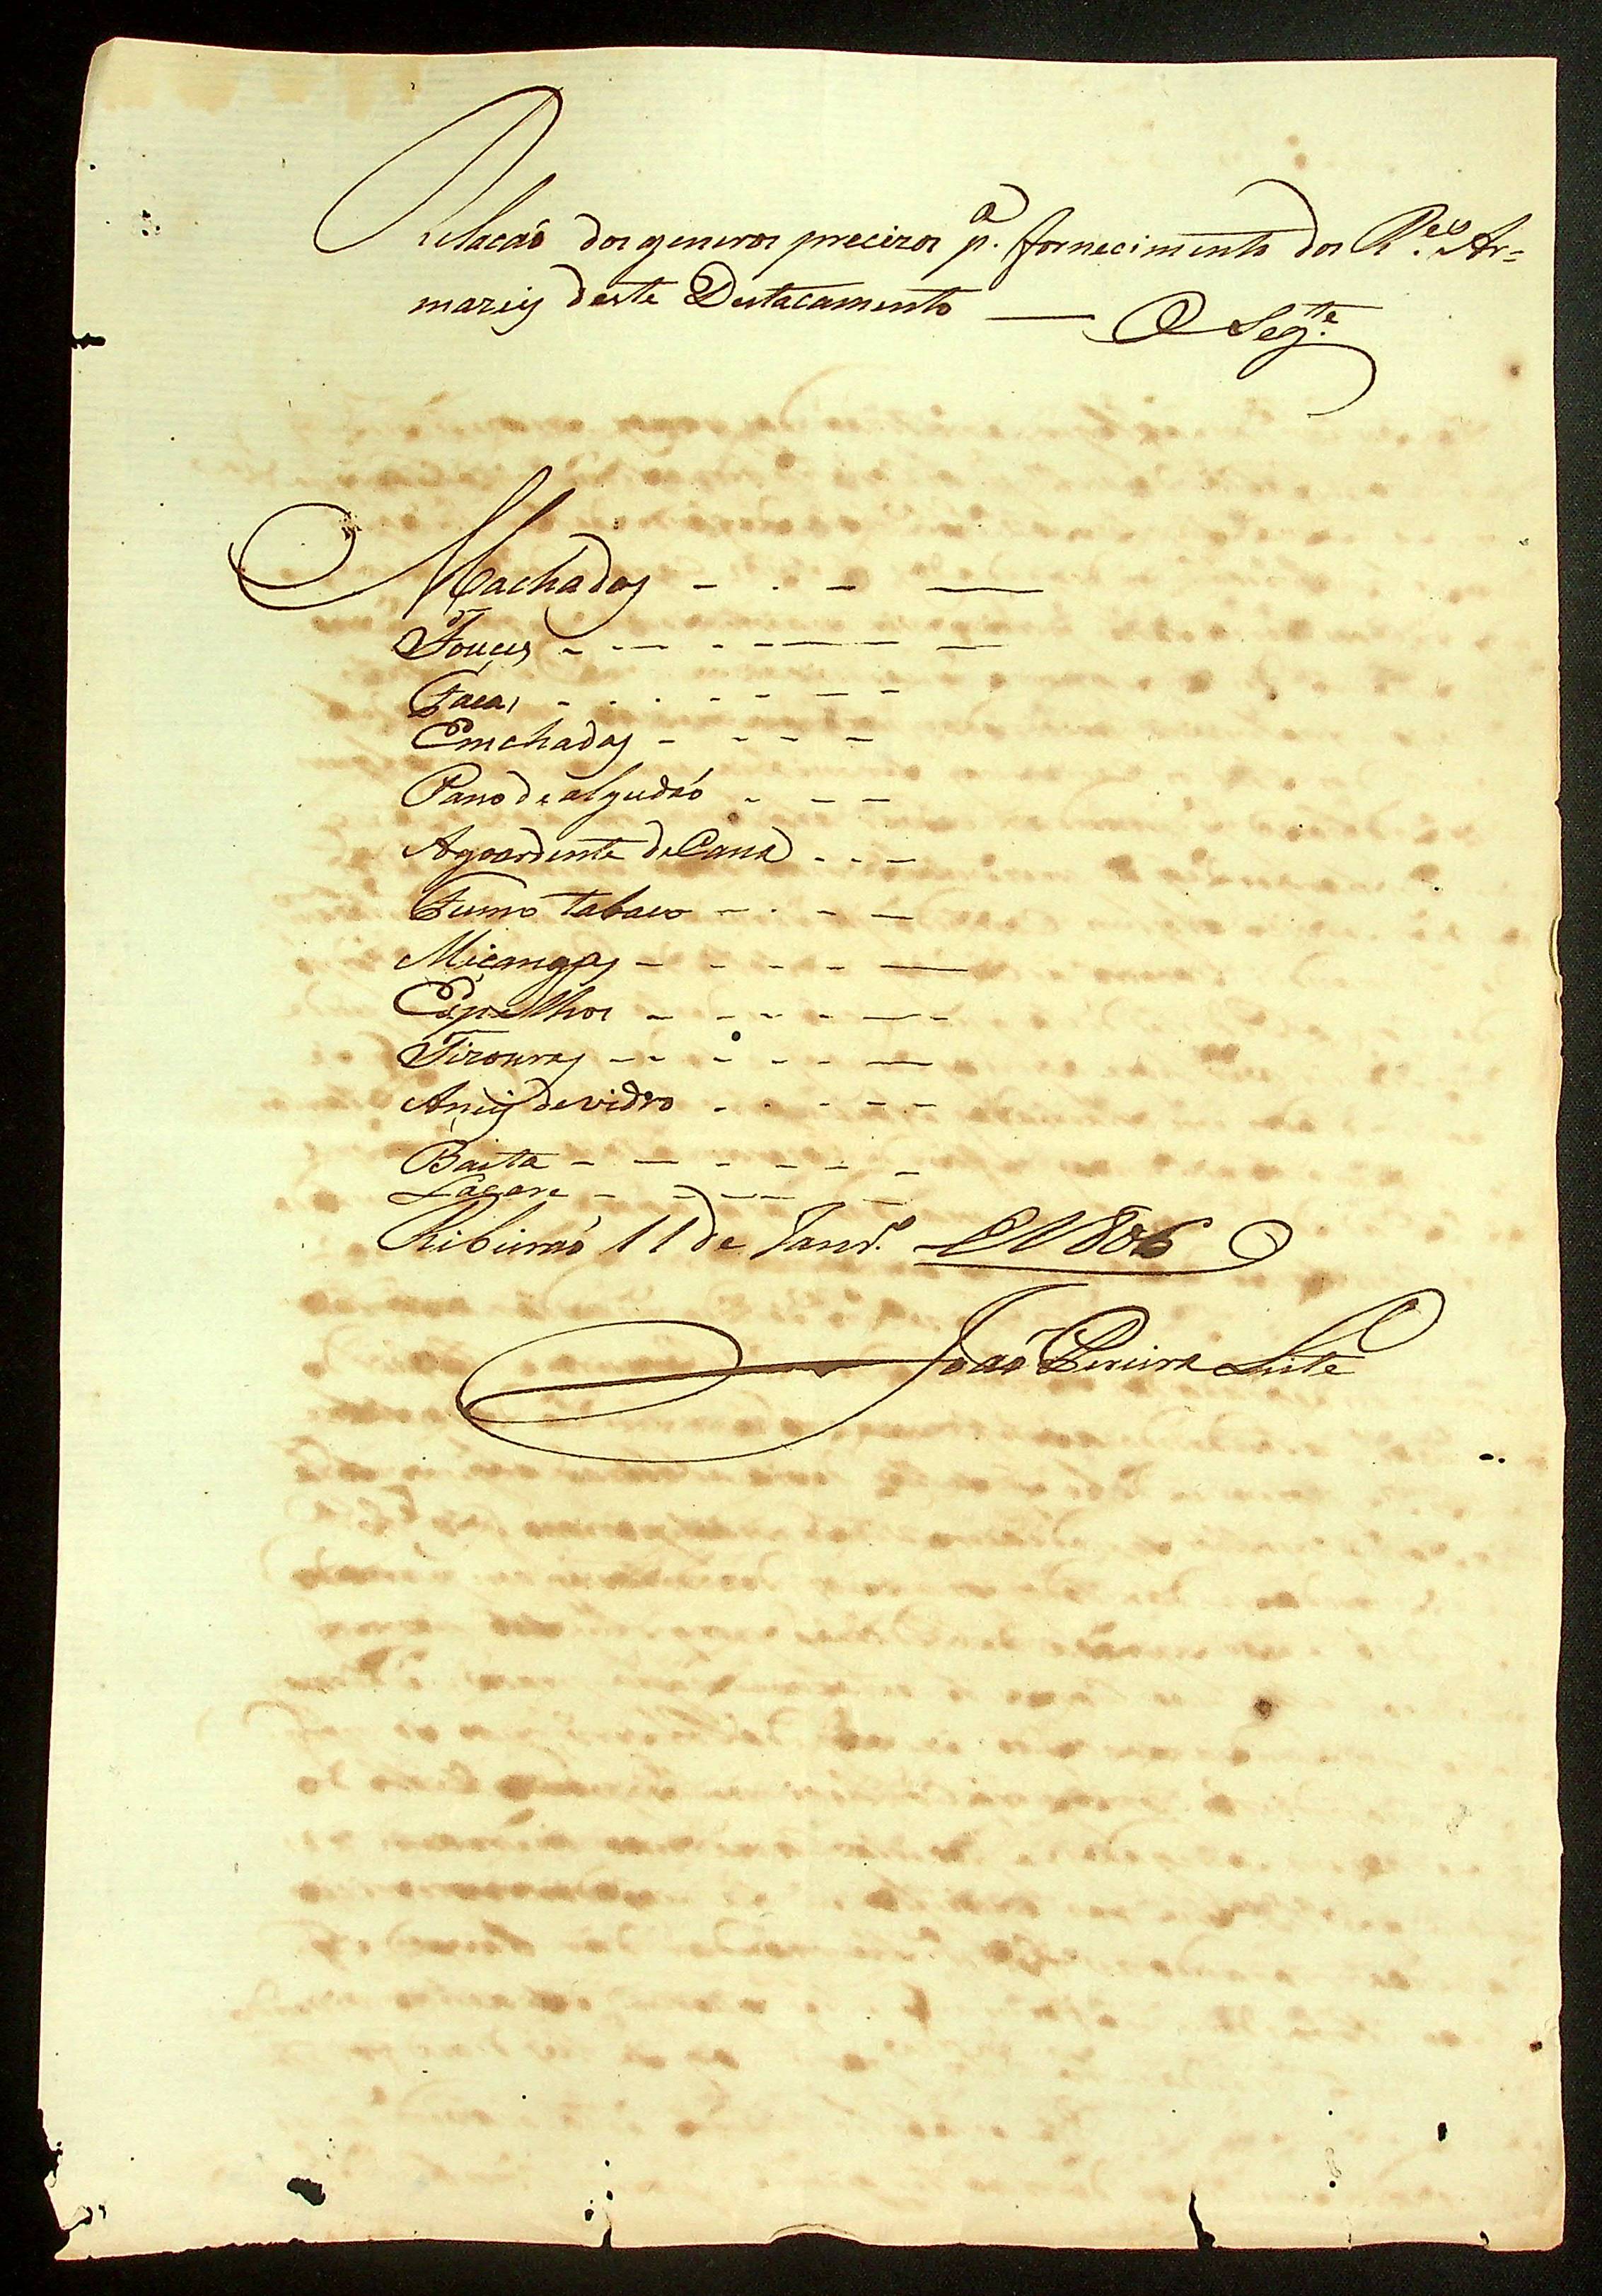 Relacaõ dos generos precizos p.ª fornecimento dos R.es Ar=
mazeis deste Destacamento — O Seg.te
Machados
Fouces
Facas
Emchadas
Pano de algudaõ
Agoardente de Cana
Fumo tabaco
Miçangas
Espelhos
Tizouras
Aneis de vidro
Baeta
Lacare
Ribeiraõ 11 de Janr.º de 1806
Joaõ Pereira Leite